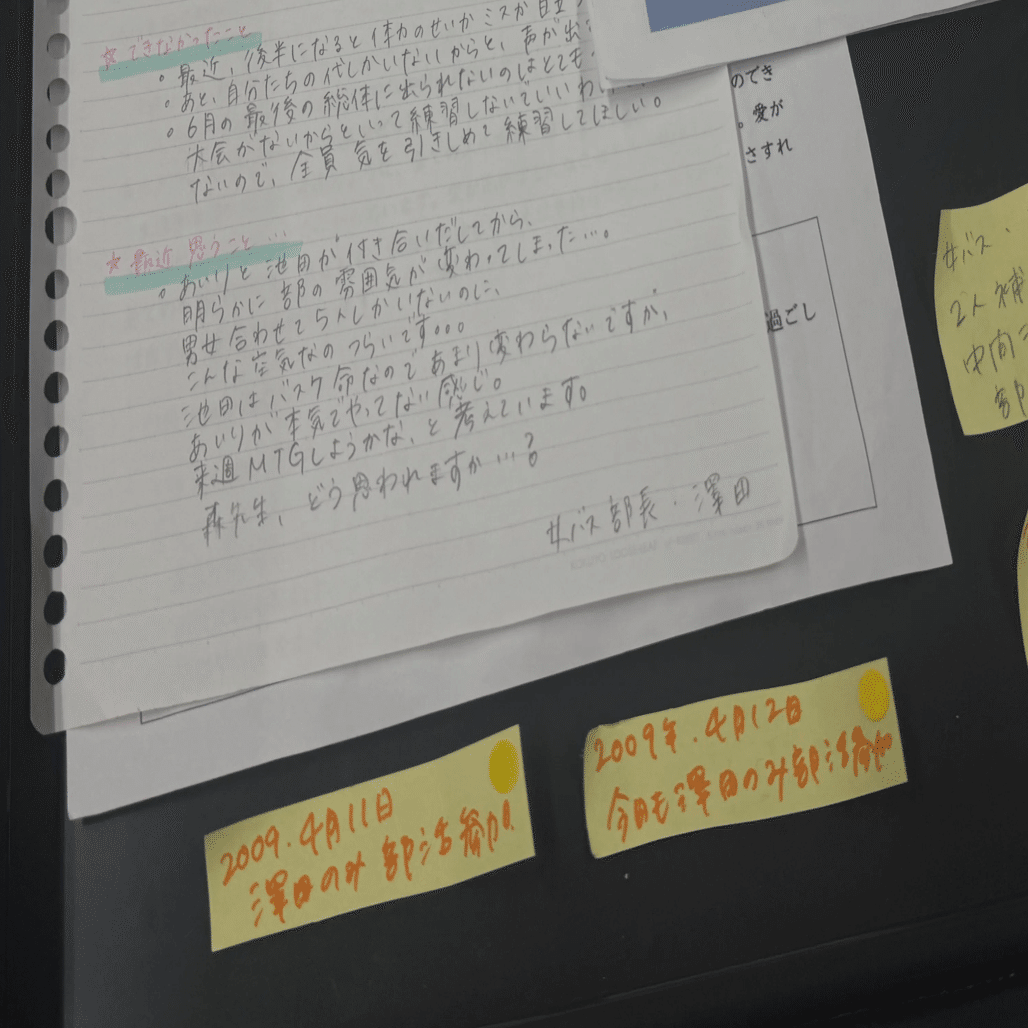 ☆できなかったこと
。最近、後半になると体力のせいかミスが目立
。あと、自分たちの代しかいないからと、声が出
。6月の最後の総体に出られないのはとても
大会がないからといって練習しないでいいわ
ないので、全員気を引きしめて練習してほしい。
☆最近思うこと…
。あいりと池田が付き合いだしてから、
明らかに部の雰囲気が変わってしまった…。
男女合わせて5人しかいないのに、
こんな空気なのつらいです。。。
池田はバスケ命なのであまり変わらないですが、
あいりが本気でやってない感じ。
来週MTGしようかな、と考えています。
森先生、どう思われますか…?
女バス部長・澤田
のでき
。愛が
さすれ
過ごし
女バス・
2人補
中向
部
2009.4月11日
澤田のみ部活参加!
2009年.4月12日
今日も澤田のみ部活参加